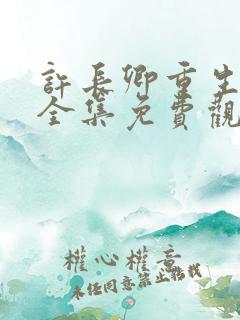 許長卿重生
全集免費觀
權心權意
未经同意禁止搭栈